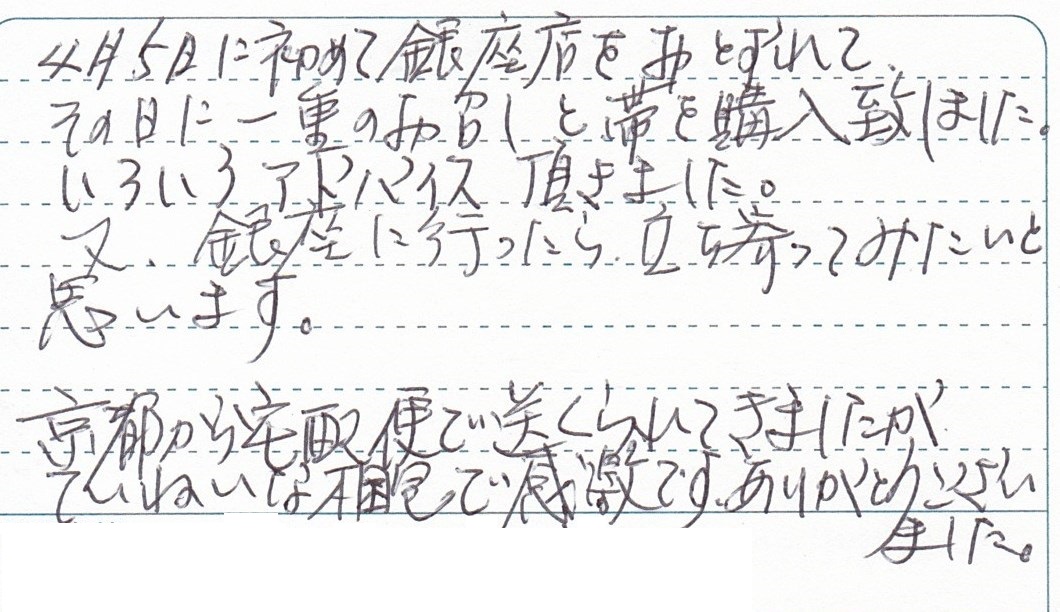 4月5日に初めて銀座店をおとずれて、
その日に一重のお召しと帯を購入致しました。
いろいろアドバイス頂きました。
又、銀座に行ったら立ち寄ってみたいと
思います。
京都から宅配便で送くられてきましたが
ていねいな梱包で感激です。ありがとうござい
ました。